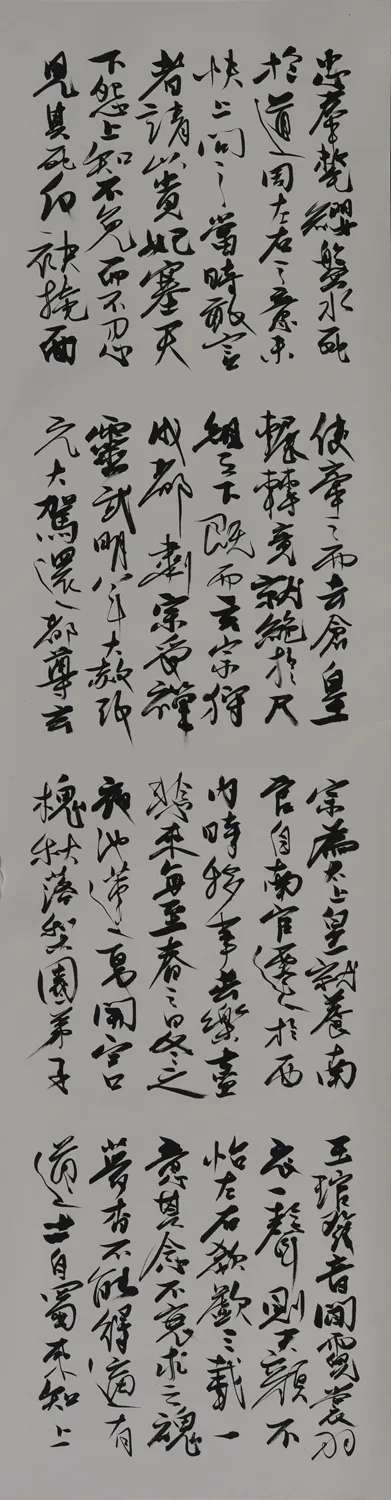 忠奉氂纓盤水死
於道周左右之意未
快上問之當時敢言
者請以貴妃塞天
下怨上知不免而不忍
見其死反袂掩面
使牽之而去倉皇
輾轉竟就絶於尺
組之下既而玄宗狩
成都肅宗受禪
靈武明年大赦改
元大駕還都尊玄
宗為太上皇就養南
宮自南宮遷於西
內時移事去樂盡
悲來每至春之日冬之
夜池蓮夏開宮
槐秋落梨園弟子
玉琯發音聞霓裳羽
衣一聲則天顏不
怡左右歔欷三載一
意其念不衰求之魂
夢杳不能得適有
道士自蜀來知上